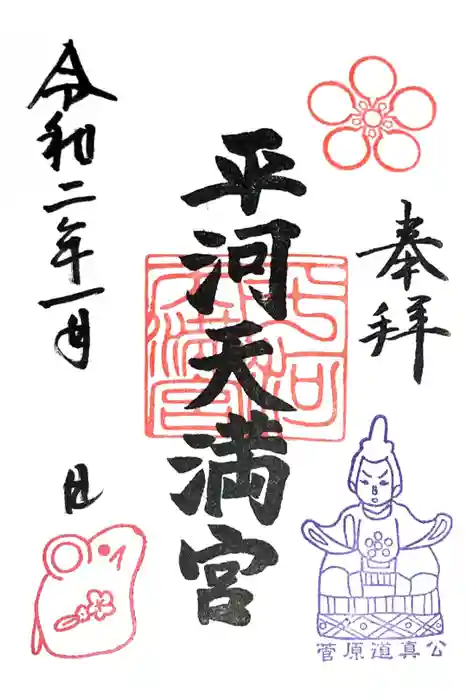 奉拝
平河天満宮
平河
天満宮
令和二年一月 日
菅原道真公